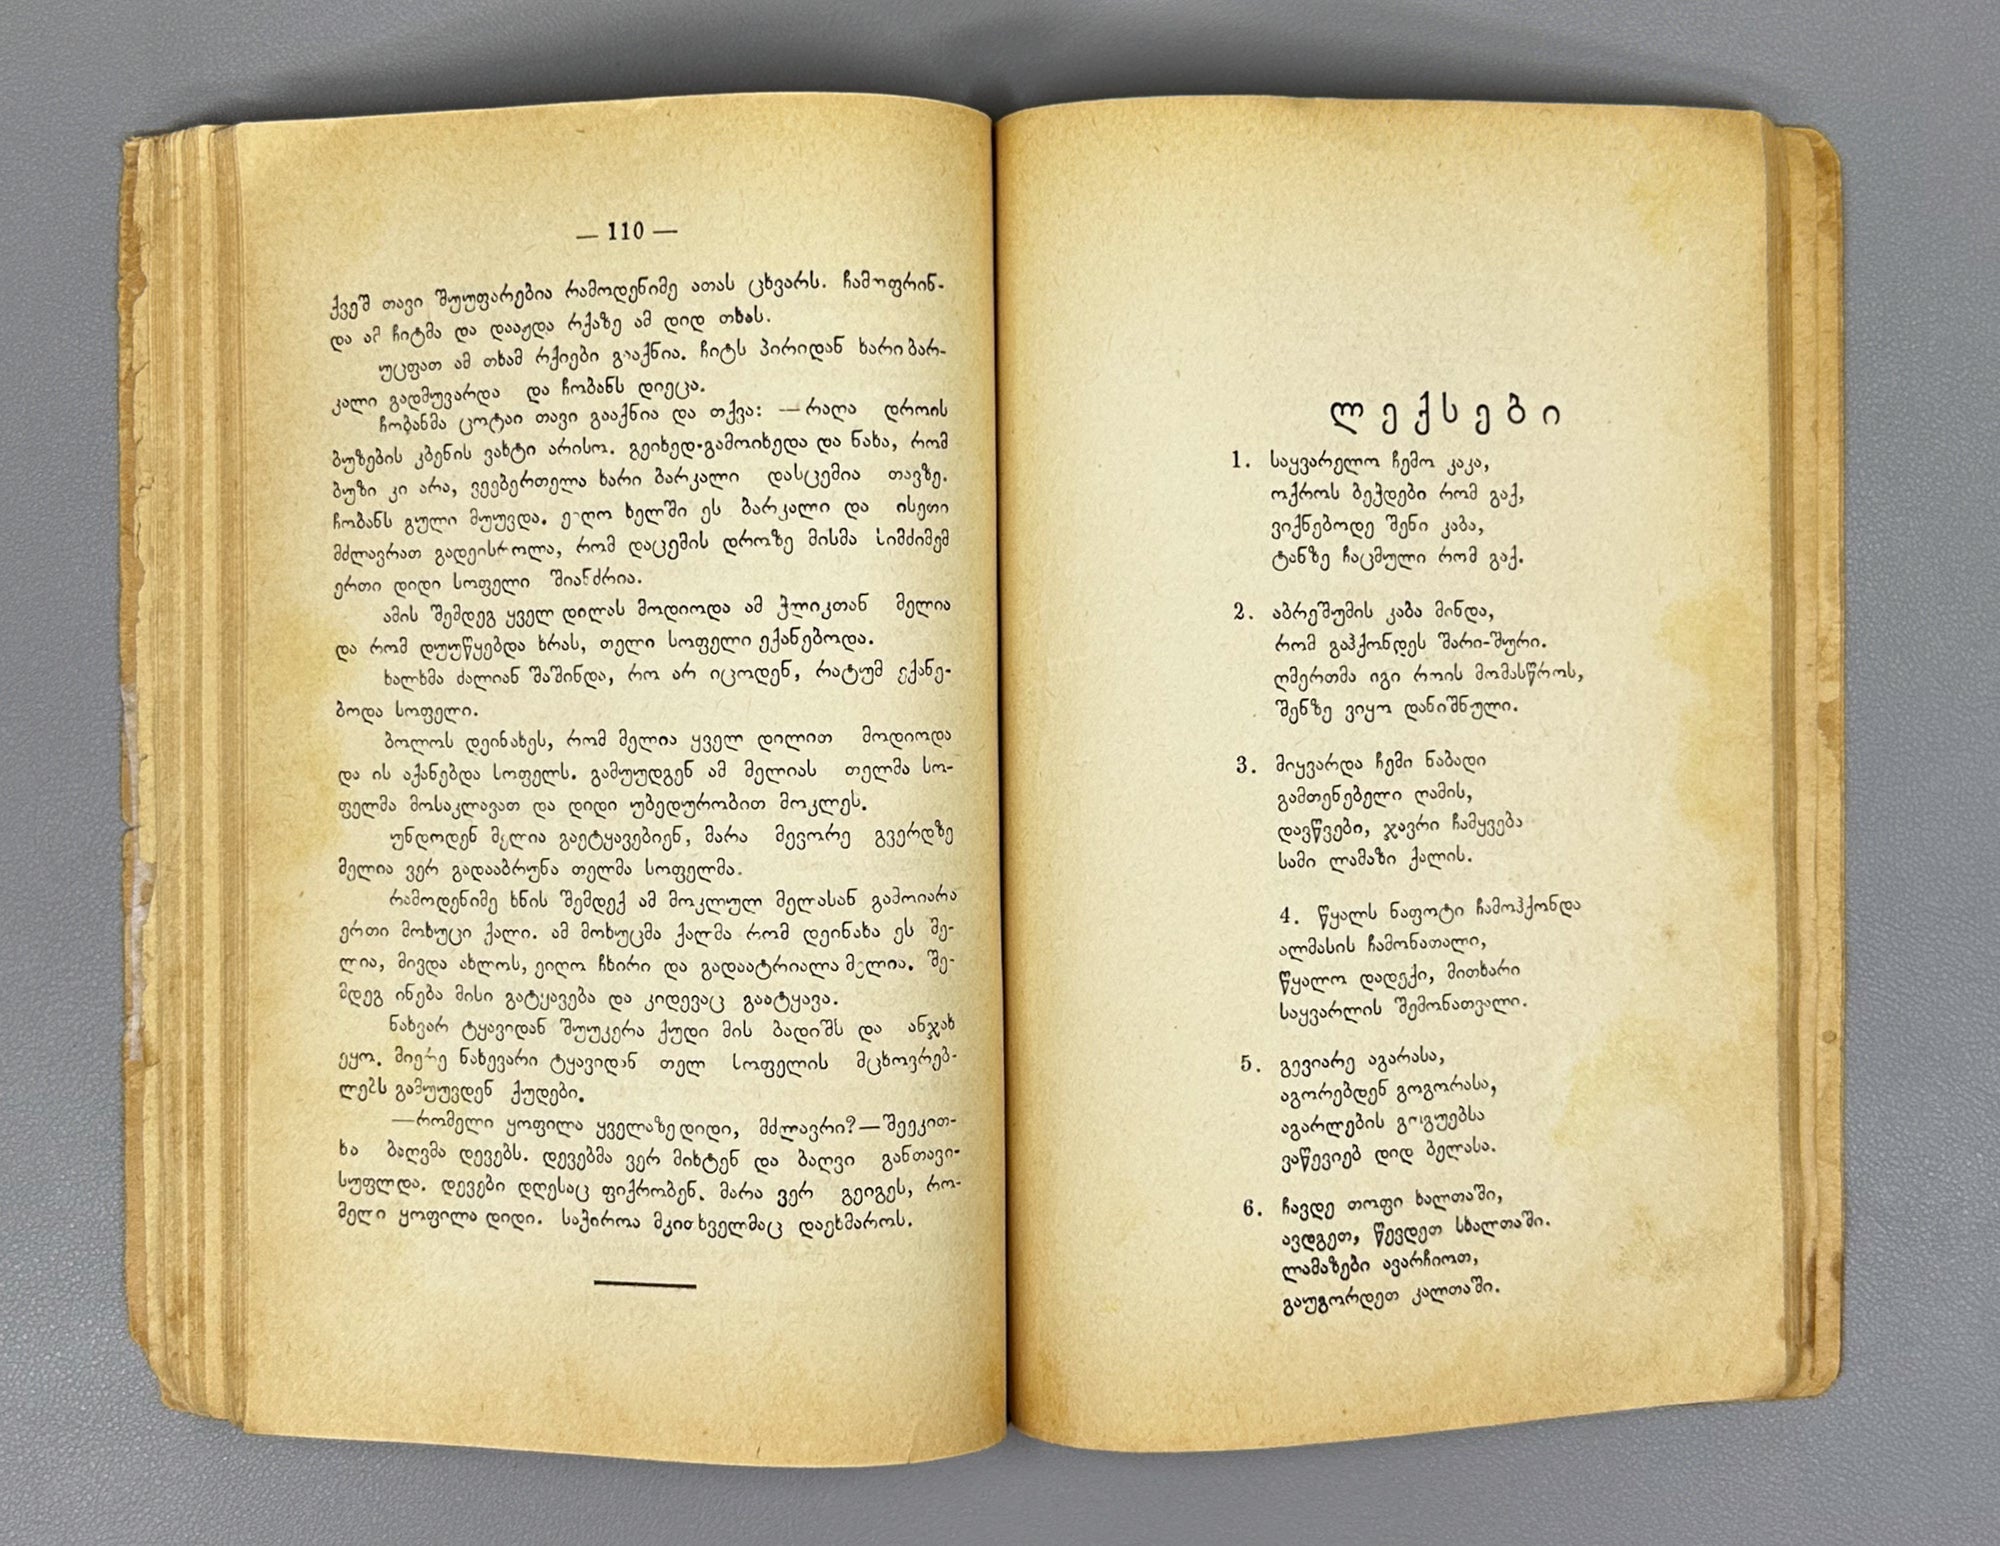 — 110 —
ქვეშ თავი შუუფარებია რამოდენიმე ათას ცხვარს. ჩამოფრინ-
და ამ ჩიტმა და დააჟდა რქაზე ამ დიდ თხას.
უცფათ ამ თხამ რქიები გააქნია. ჩიტს პირიდან ხარი ბარ-
კალი გადმუვარდა და ჩობანს დიეცა.
ჩობანმა ცოტაი თავი გააქნია და თქვა: —რაღა დროის
ბუზების კბენის ვახტი არისო. გეიხედ-გამოიხედა და ნახა, რომ
ბუზი კი არა, ვეებერთელა ხარი ბარკალი დასცემია თავზე.
ჩობანს გული მუუვდა. ეიღო ხელში ეს ბარკალი და ისეთი
მძლავრათ გადეისროლა, რომ დაცემის დროზე მისმა სიმძიმემ
ერთი დიდი სოფელი შიანძრია.
ამის შემდეგ ყველ დილას მოდიოდა ამ ჭლიკთან მელია
და რომ დუუწყებდა ხრას, თელი სოფელი ექანებოდა.
ხალხმა ძალიან შაშინდა, რო არ იცოდენ, რატუმ ექანე-
ბოდა სოფელი.
ბოლოს დეინახეს, რომ მელია ყველ დილით მოდიოდა
და ის აქანებდა სოფელს. გამუუდგენ ამ მელიას თელმა სო-
ფელმა მოსაკლავათ და დიდი უბედურობით მოკლეს.
უნდოდენ მელია გაეტყავებიენ, მარა მევორე გვერდზე
მელია ვერ გადააბრუნა თელმა სოფელმა.
რამოდენიმე ხნის შემდექ ამ მოკლულ მელასან გამოიარა
ერთი მოხუცი ქალი. ამ მოხუცმა ქალმა რომ დეინახა ეს მე-
ლია, მივდა ახლოს, ეიღო ჩხირი და გადაატრიალა მელია. შე-
მდეგ ინება მისი გატყავება და კიდევაც გაატყავა.
ნახვარ ტყავიდან შუუკერა ქუდი მის ბადიშს და ანჯახ
ეყო. მიერე ნახევარი ტყავიდან თელ სოფელის მცხოვრებ-
ლებს გამუუვდენ ქუდები.
—რომელი ყოფილა ყველაზე დიდი, მძლავრი?—შეეკით-
ხა ბაღვმა დევებს. დევებმა ვერ მიხტენ და ბაღვი განთავი-
სუფლდა. დევები დღესაც ფიქრობენ. მარა ვერ გეიგეს, რო-
მელი ყოფილა დიდი. საჭიროა მკითხველმაც დაეხმაროს.
ლექსები
1. საყვარელო ჩემო კაკა,
ოქროს ბეჭდები რომ გაქ,
ვიქნებოდე შენი კაბა,
ტანზე ჩაცმული რომ გაქ.
2. აბრეშუმის კაბა მინდა,
რომ გაჰქონდეს შარი-შური.
ღმერთმა იგი როის მომასწროს,
შენზე ვიყო დანიშნული.
3. მიყვარდა ჩემი ნაბადი
გამთენებელი ღამის,
დავწვები, ჯავრი ჩამყვება
სამი ლამაზი ქალის.
4. წყალს ნაფოტი ჩამოჰქონდა
ალმასის ჩამონათალი,
წყალო დადექი, მითხარი
საყვარლის შემონათვალი.
5. გევიარე აგარასა,
აგორებდენ გოგორასა,
აგარლების გოგუებსა
ვაწევიებ დიდ ბელასა.
6. ჩავდე თოფი ხალთაში,
ავდგეთ, წევდეთ სხალთაში.
ლამაზები ავარჩიოთ,
გაუგორდეთ კალთაში.